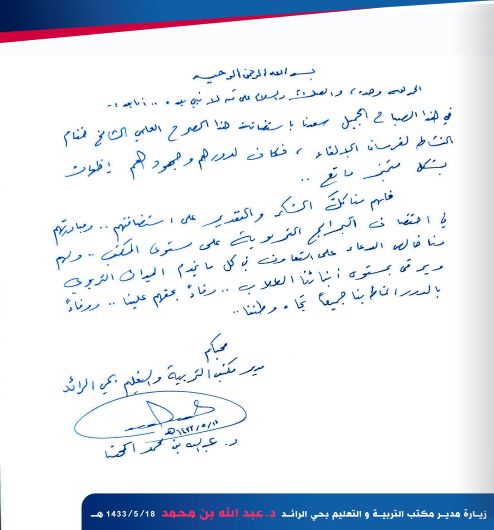 بسم الله الرحمن الرحيم
الحمد لله وحده، والصلاة والسلام على من لا نبي بعده .. أما بعد :-
في هذا الصباح الجميل سعدنا باستضافة هذا الصرح العلمي الشامخ لختام
النشاط لفرسان الإلقاء ، فكان لدورهم وجهودهم
بشكل متميز ماتع ..
فلهم منا كل الشكر والتقدير على استضافتهم .. ومبادرتهم
في احتضان البرامج التربوية على مستوى المكتب .. ولهم
منا خالص الدعاء على التعاون في كل ما يخدم الميدان التربوي
ويرقى بمستوى أبنائنا الطلاب .. وفاءً بحقهم علينا .. ووفاءً
بالدور المناط بنا جميعاً تجاه وطننا ..
محبكم
مدير مكتب التربية والتعليم بحي الرائد
د. عبدالله بن محمد
زيارة مدير مكتب التربية و التعليم بحي الرائـد د. عبد الله بن محمد 1433/5/18 هـ